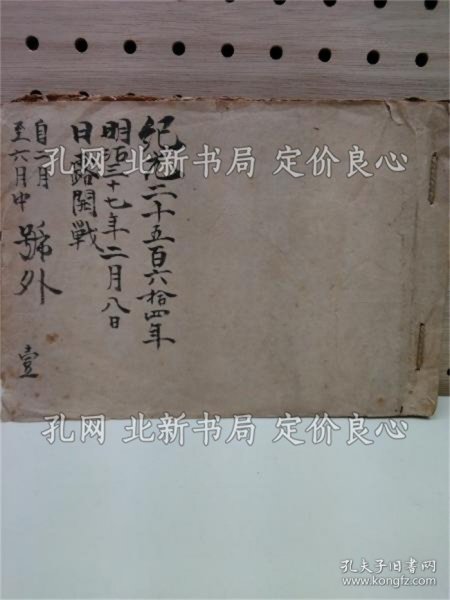 紀元二千五百六拾四年
明治三十七年二月八日
日露開戰
自二月
至六月中
號外
壹
孔网 北新书局 定价良心
孔网 北新书局 定价良心
孔网 北新书局 定价良心
孔夫子旧书网
www.kongfz.com